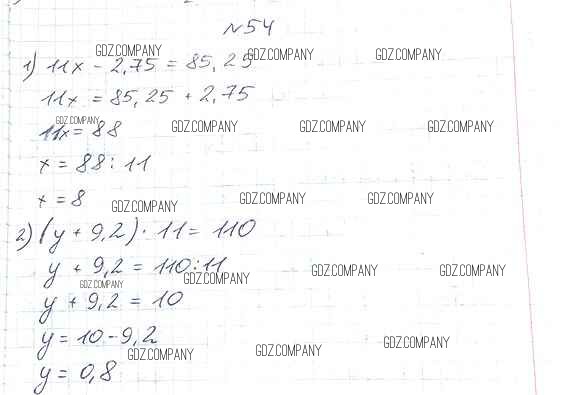 №54
GDZ.COMPANY GDZ.COMPANY GDZ.COMPANY
1) 11x - 2,75 = 85,25
11x = 85,25 + 2,75
GDZ.COMPANY
11x = 88
GDZ.COMPANY GDZ.COMPANY GDZ.COMPANY
x = 88 : 11
x = 8
GDZ.COMPANY GDZ.COMPANY GDZ.COMPANY
2) (y + 9,2) · 11 = 110
y + 9,2 = 110 : 11
GDZ.COMPANY GDZ.COMPANY GDZ.COMPANY GDZ.COMPANY
y + 9,2 = 10
y = 10 - 9,2
GDZ.COMPANY GDZ.COMPANY GDZ.COMPANY
y = 0,8